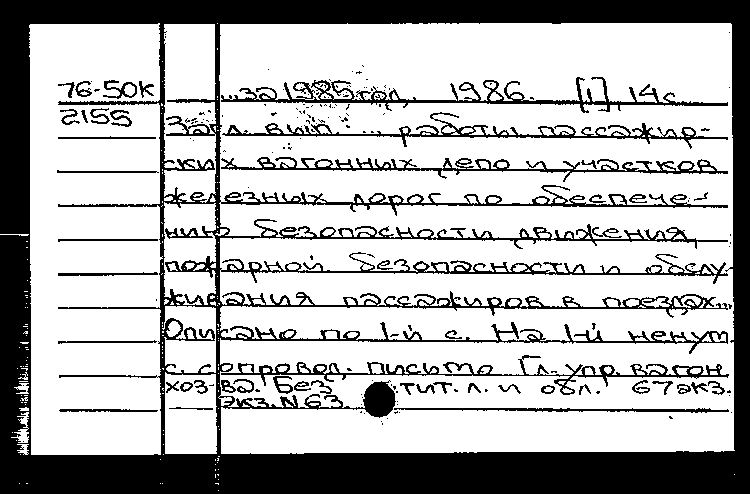 76-50К ...за 1985 год, 1986. [1], 14 с.
2155
Загл. вып.: ... работы пассажир-
ских вагонных депо и участков
железных дорог по обеспече-
нию безопасности движения,
пожарной безопасности и обслу-
живания пассажиров в поездах...
Описано по 1-й с. На 1-й ненум.
с. сопровод. письмо Гл. упр. вагон.
хоз-ва. Без тит. л. и обл. 67 экз.
Экз. N 63.